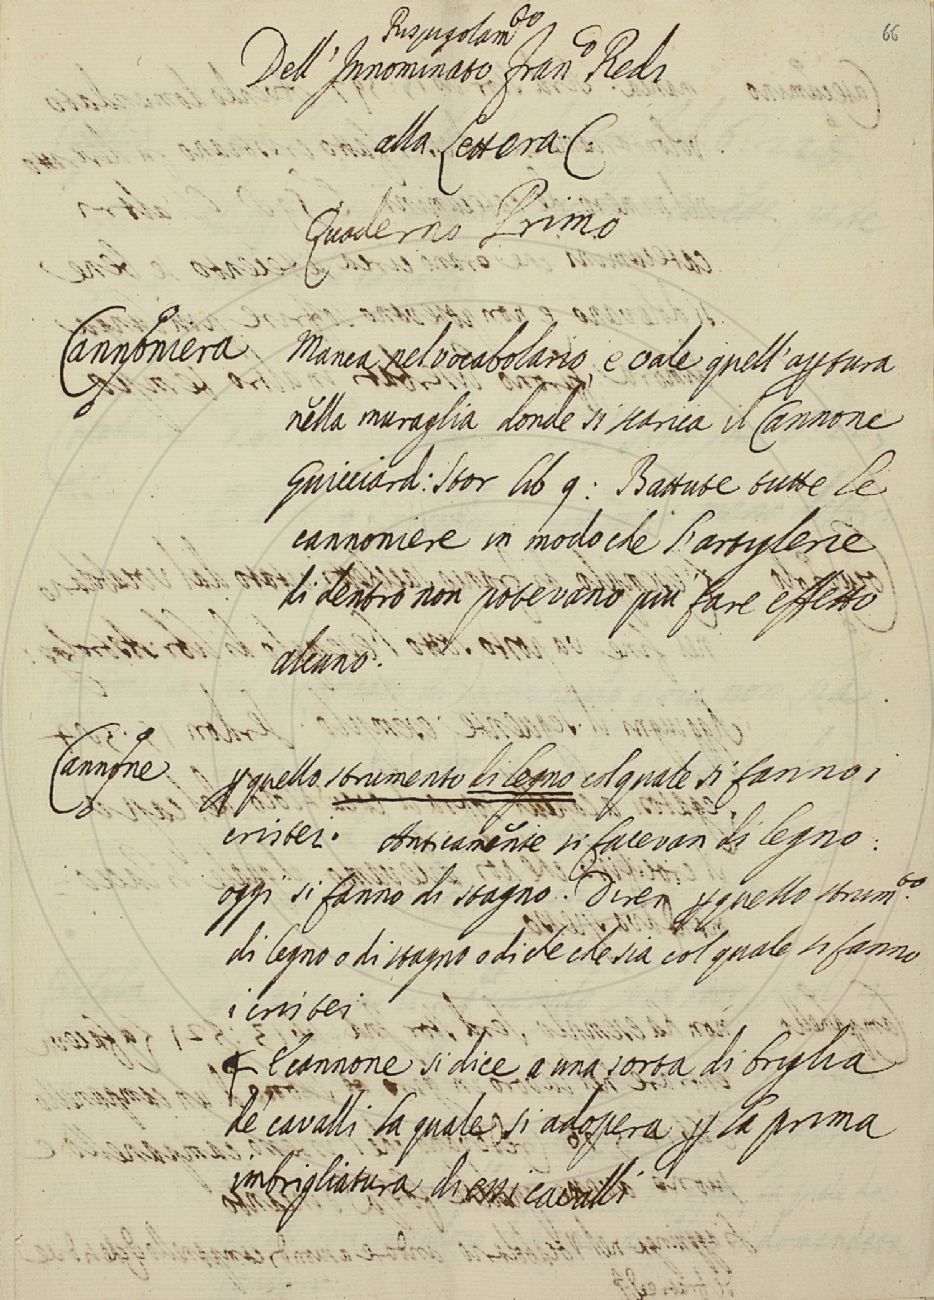 66
Rispigolam.to
Dell'Innominato Fran.co Redi
alla Lettera C
Quaderno Primo
Cannoniera Manca nel vocabolario, e vale quell'apertura
nella muraglia donde si scarica il Cannone
Guicciard: Stor lib 9: Battute tutte le
cannoniere in modo che l'artiglerie
di dentro non potevano più fare effetto
alcuno.
Cannone
quello strumento di legno col quale si fanno i
cristei. Anticamẽnte si facevan di legno:
oggi si fanno di stagno. Direi quello strum.to
di legno o di stagno o di che che sia col quale si fanno
i cristei
Cannone si dice a una sorta di briglia
de cavalli la quale si adopera la prima
imbrigliatura di essi cavalli